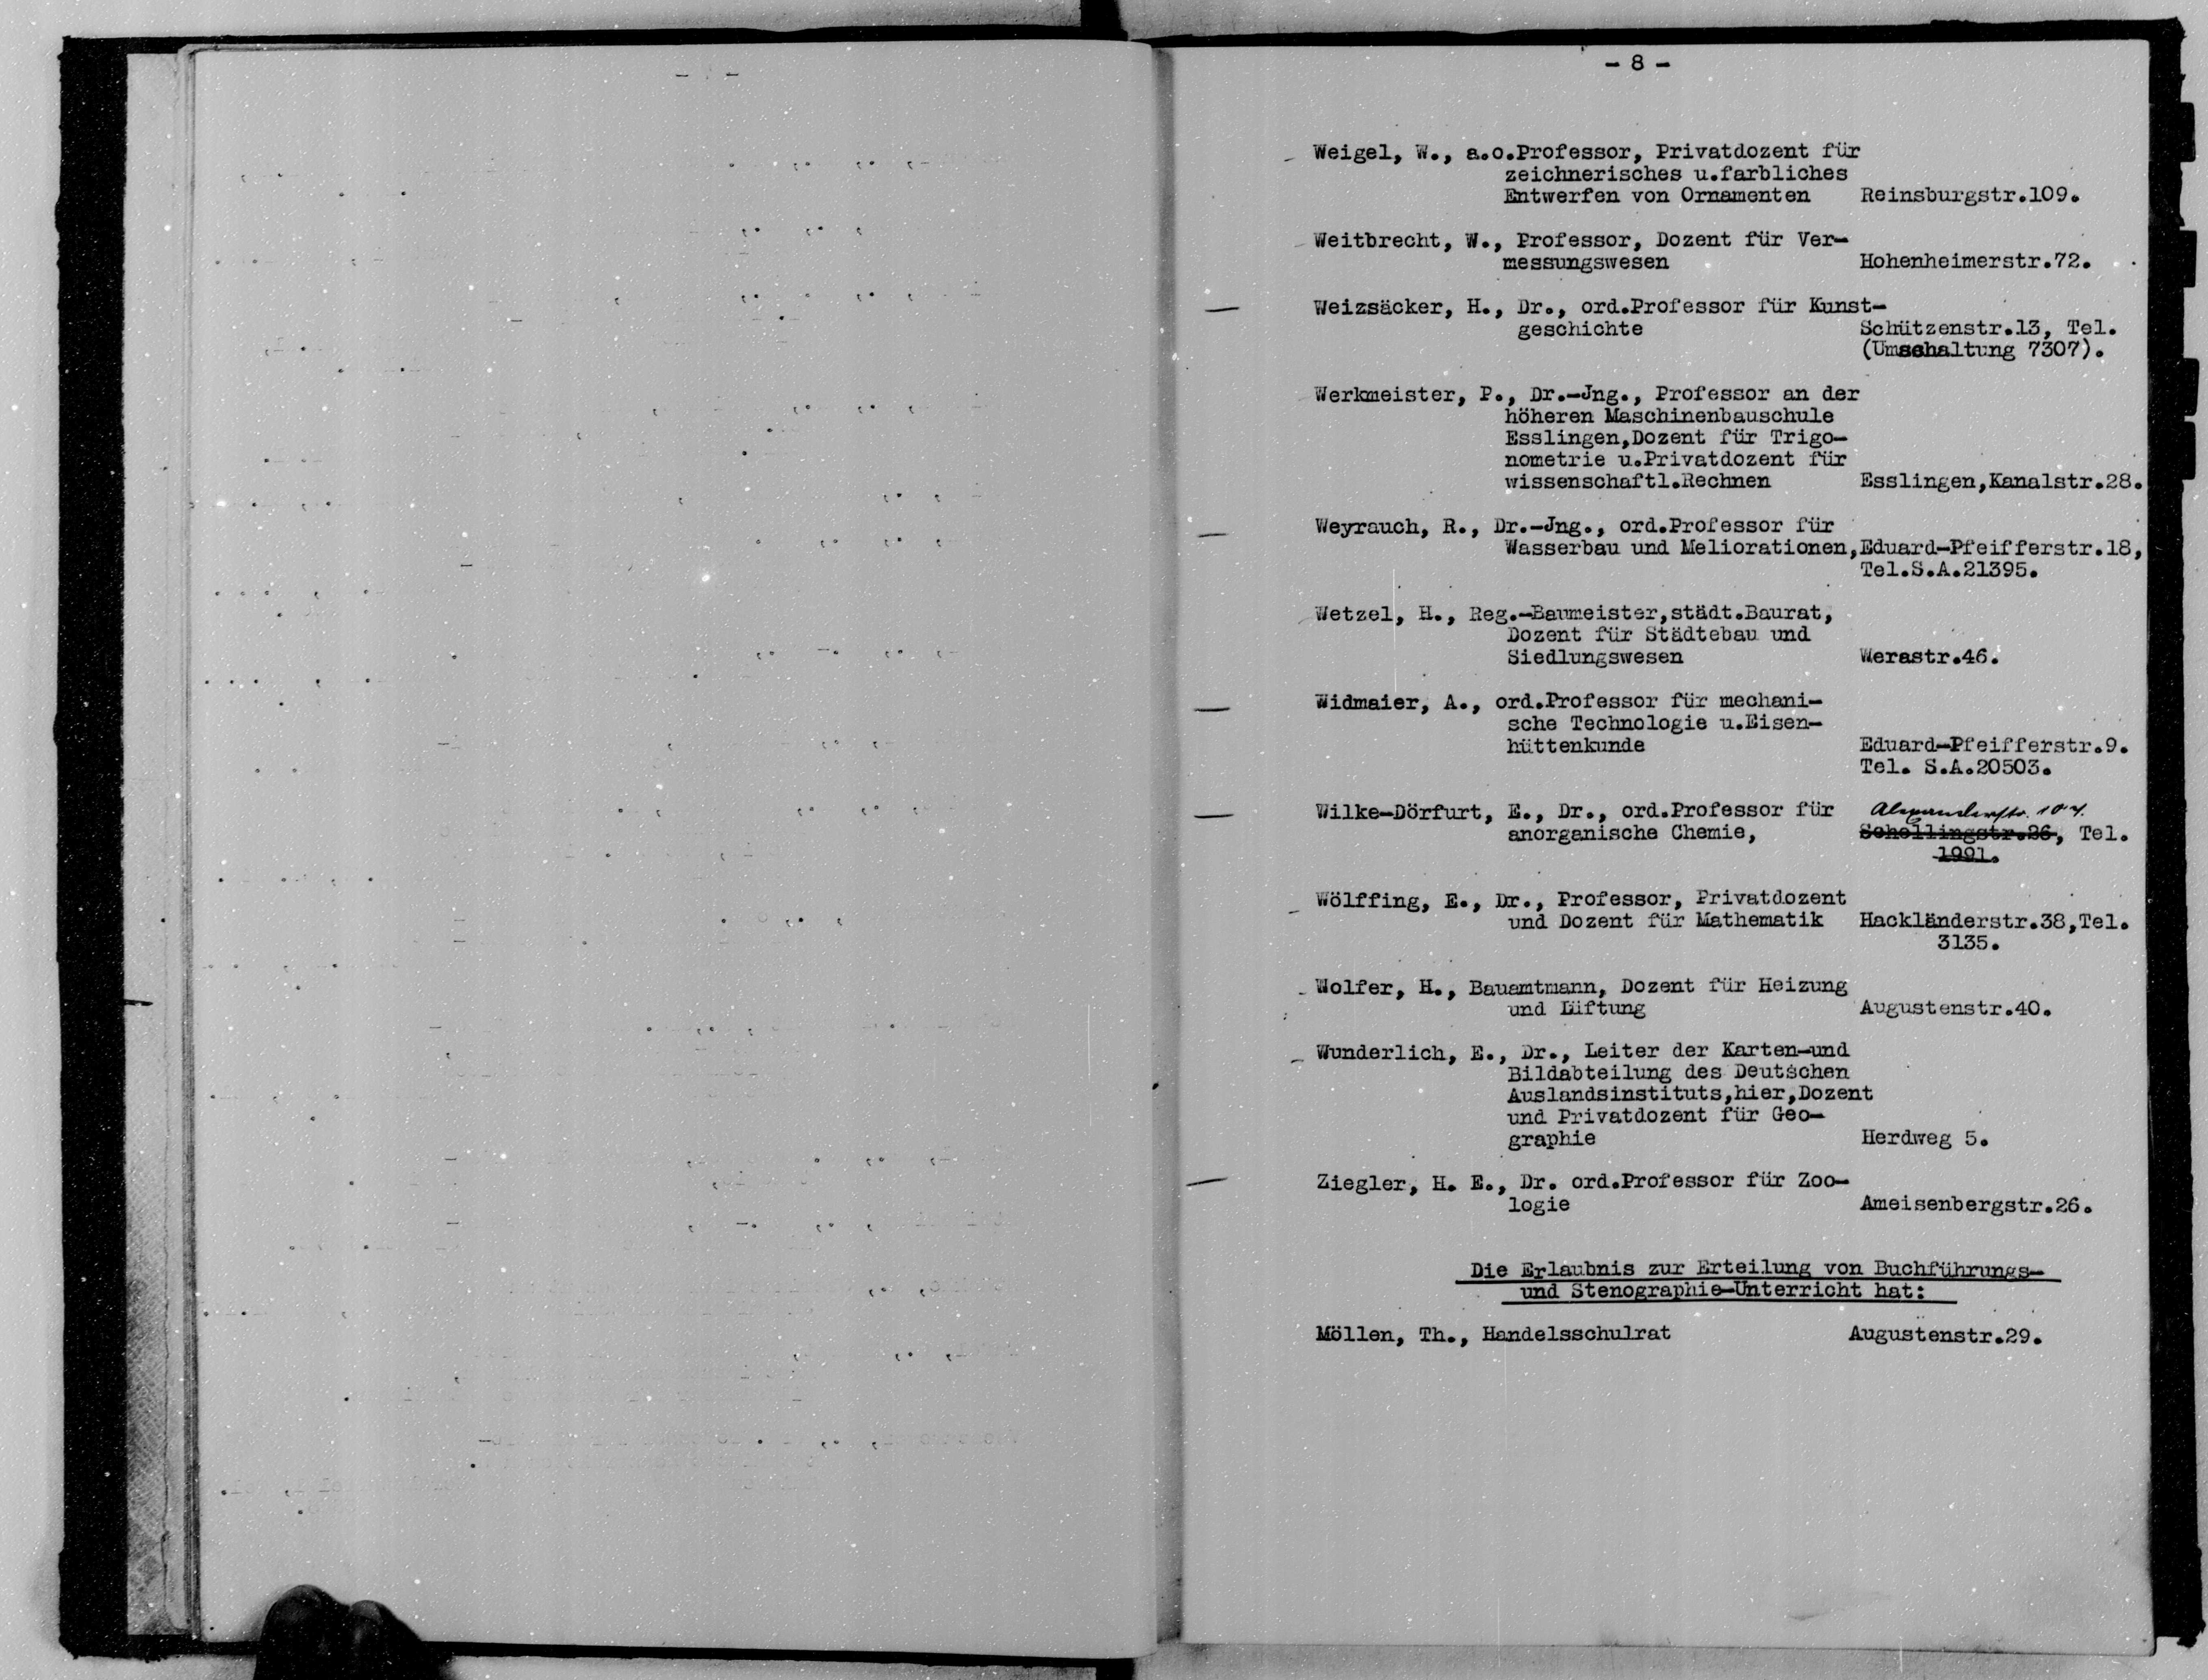 - 8 -
Weigel, W., a.o.Professor, Privatdozent für
zeichnerisches u.farbliches
Entwerfen von Ornamenten Reinsburgstr.109.
Weitbrecht, W., Professor, Dozent für Ver-
messungswesen Hohenheimerstr.72.
Weizsäcker, H., Dr., ord.Professor für Kunst-
geschichte Schützenstr.13, Tel.
(Umschaltung 7307).
Werkmeister, P., Dr.-Jng., Professor an der
höheren Maschinenbauschule
Esslingen,Dozent für Trigo-
nometrie u.Privatdozent für
wissenschaftl.Rechnen Esslingen,Kanalstr.28.
Weyrauch, R., Dr.-Jng., ord.Professor für
Wasserbau und Meliorationen,Eduard-Pfeifferstr.18,
Tel.S.A.21395.
Wetzel, H., Reg.-Baumeister,städt.Baurat,
Dozent für Städtebau und
Siedlungswesen Werastr.46.
Widmaier, A., ord.Professor für mechani-
sche Technologie u.Eisen-
hüttenkunde Eduard-Pfeifferstr.9.
Tel. S.A.20503.
Wilke-Dörfurt, E., Dr., ord.Professor für Alexanderstr.
anorganische Chemie, Schellingstr.26, Tel.
1991.
Wölffing, E., Dr., Professor, Privatdozent
und Dozent für Mathematik Hackländerstr.38,Tel.
3135.
Wolfer, H., Bauamtmann, Dozent für Heizung
und Lüftung Augustenstr.40.
Wunderlich, E., Dr., Leiter der Karten-und
Bildabteilung des Deutschen
Auslandsinstituts,hier,Dozent
und Privatdozent für Geo-
graphie Herdweg 5.
Ziegler, H. E., Dr. ord.Professor für Zoo-
logie Ameisenbergstr.26.
Die Erlaubnis zur Erteilung von Buchführungs-
und Stenographie-Unterricht hat:
Möllen, Th., Handelsschulrat Augustenstr.29.